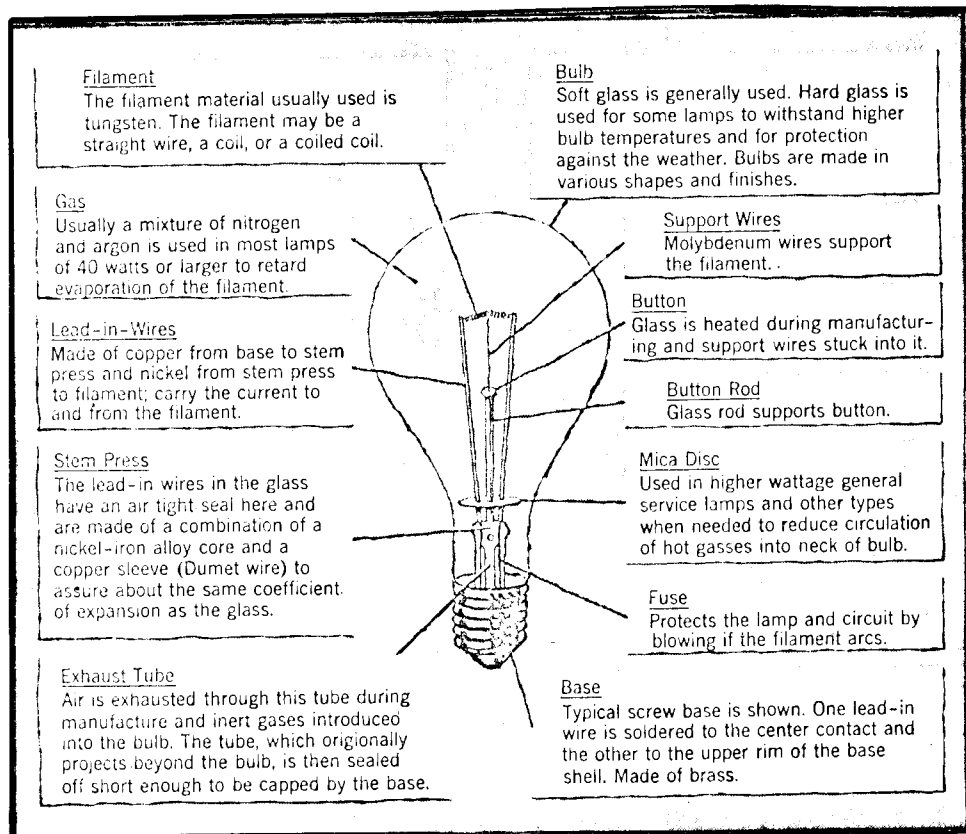 Filament
The filament material usually used is
tungsten. The filament may be a
straight wire, a coil, or a coiled coil.
Gas
Usually a mixture of nitrogen
and argon is used in most lamps
of 40 watts or larger to retard
evaporation of the filament.
Lead-in-Wires
Made of copper from base to stem
press and nickel from stem press
to filament; carry the current to
and from the filament.
Stem Press
The lead-in wires in the glass
have an air tight seal here and
are made of a combination of a
nickel-iron alloy core and a
copper sleeve (Dumet wire) to
assure about the same coefficient
of expansion as the glass.
Exhaust Tube
Air is exhausted through this tube during
manufacture and inert gases introduced
into the bulb. The tube, which origionally
projects beyond the bulb, is then sealed
off short enough to be capped by the base.
Bulb
Soft glass is generally used. Hard glass is
used for some lamps to withstand higher
bulb temperatures and for protection
against the weather. Bulbs are made in
various shapes and finishes.
Support Wires
Molybdenum wires support
the filament..
Button
Glass is heated during manufactur-
ing and support wires stuck into it.
Button Rod
Glass rod supports button.
Mica Disc
Used in higher wattage general
service lamps and other types
when needed to reduce circulation
of hot gasses into neck of bulb.
Fuse
Protects the lamp and circuit by
blowing if the filament arcs.
Base
Typical screw base is shown. One lead-in
wire is soldered to the center contact and
the other to the upper rim of the base
shell. Made of brass.